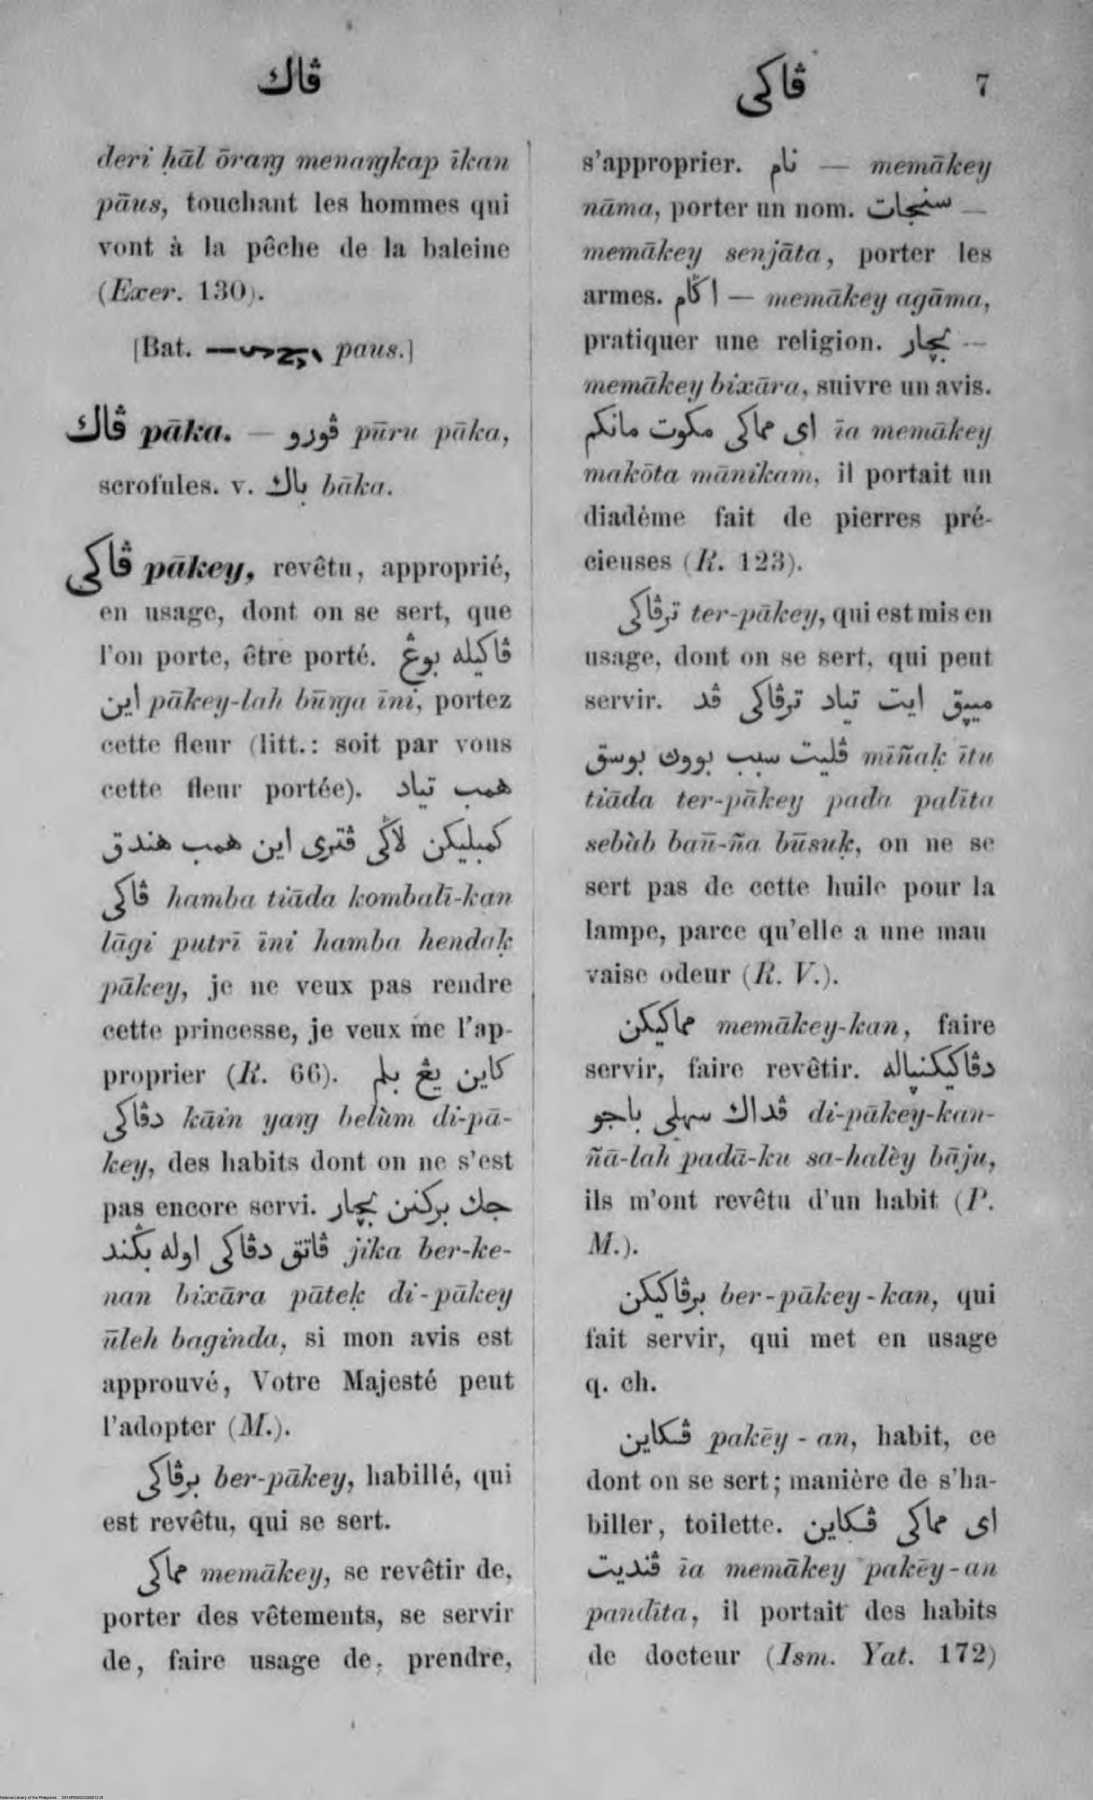 ڤاك
ڤاكي
7
deri ḥāl ōraṅg menaṅgkap īkan
pāus, touchant les hommes qui
vont à la pêche de la baleine
(Exer. 130).
[Bat. paus.]
ڤاك pāka. — ڤورو pūru pāka,
scrofules. v. باك bāka.
ڤاكي pākey, revêtu, approprié,
en usage, dont on se sert, que
l'on porte, être porté. ڤاكيله بوڠ
اين pākey-lah būṅga īni, portez
cette fleur (litt.: soit par vous
cette fleur portée). همب تياد
كمبليكن لاݢي ڤتري اين همب هندق
ڤاكي hamba tiāda kombalī-kan
lāgi putrī īni hamba hendaḳ
pākey, je ne veux pas rendre
cette princesse, je veux me l'ap-
proprier (R. 66). كاين يڠ بلم
دڤاكي kāin yaṅg belùm di-pā-
key, des habits dont on ne s'est
pas encore servi. جك بركنن بچار
ڤاتق دڤاكي اوله بݢند jika ber-ke-
nan bixāra pāteḳ di-pākey
ūleh baginda, si mon avis est
approuvé, Votre Majesté peut
l'adopter (M.).
برڤاكي ber-pākey, habillé, qui
est revêtu, qui se sert.
مماكي memākey, se revêtir de,
porter des vêtements, se servir
de, faire usage de, prendre,
s'approprier. نام — memākey
nāma, porter un nom. سنجات —
memākey senjāta, porter les
armes. اݢام — memākey agāma,
pratiquer une religion. بچار —
memākey bixāra, suivre un avis.
اي مماكي مكوت مانكم īa memākey
makōta mānikam, il portait un
diadème fait de pierres pré-
cieuses (R. 123).
ترڤاكي ter-pākey, qui est mis en
usage, dont on se sert, qui peut
servir. ميڽق ايت تياد ترڤاكي ڤد
ڤليت سبب بووڽ بوسق mīñaḳ ītu
tiāda ter-pākey pada palīta
sebàb baū-ña būsuḳ, on ne se
sert pas de cette huile pour la
lampe, parce qu'elle a une mau
vaise odeur (R. V.).
مماكيكن memākey-kan, faire
servir, faire revêtir. دڤاكيكنڽاله
ڤداك سهلي باجو di-pākey-kan-
ñā-lah padā-ku sa-halèy bāju,
ils m'ont revêtu d'un habit (P.
M.).
برڤاكيكن ber-pākey-kan, qui
fait servir, qui met en usage
q. ch.
ڤكاين pakēy-an, habit, ce
dont on se sert; manière de s'ha-
biller, toilette. اي مماكي ڤكاين
ڤنديت īa memākey pakēy-an
pandīta, il portait des habits
de docteur (Ism. Yat. 172)